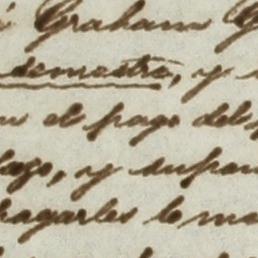 Graham G
semestre, y
el pago del
lago, y supan
pagarles lo ma